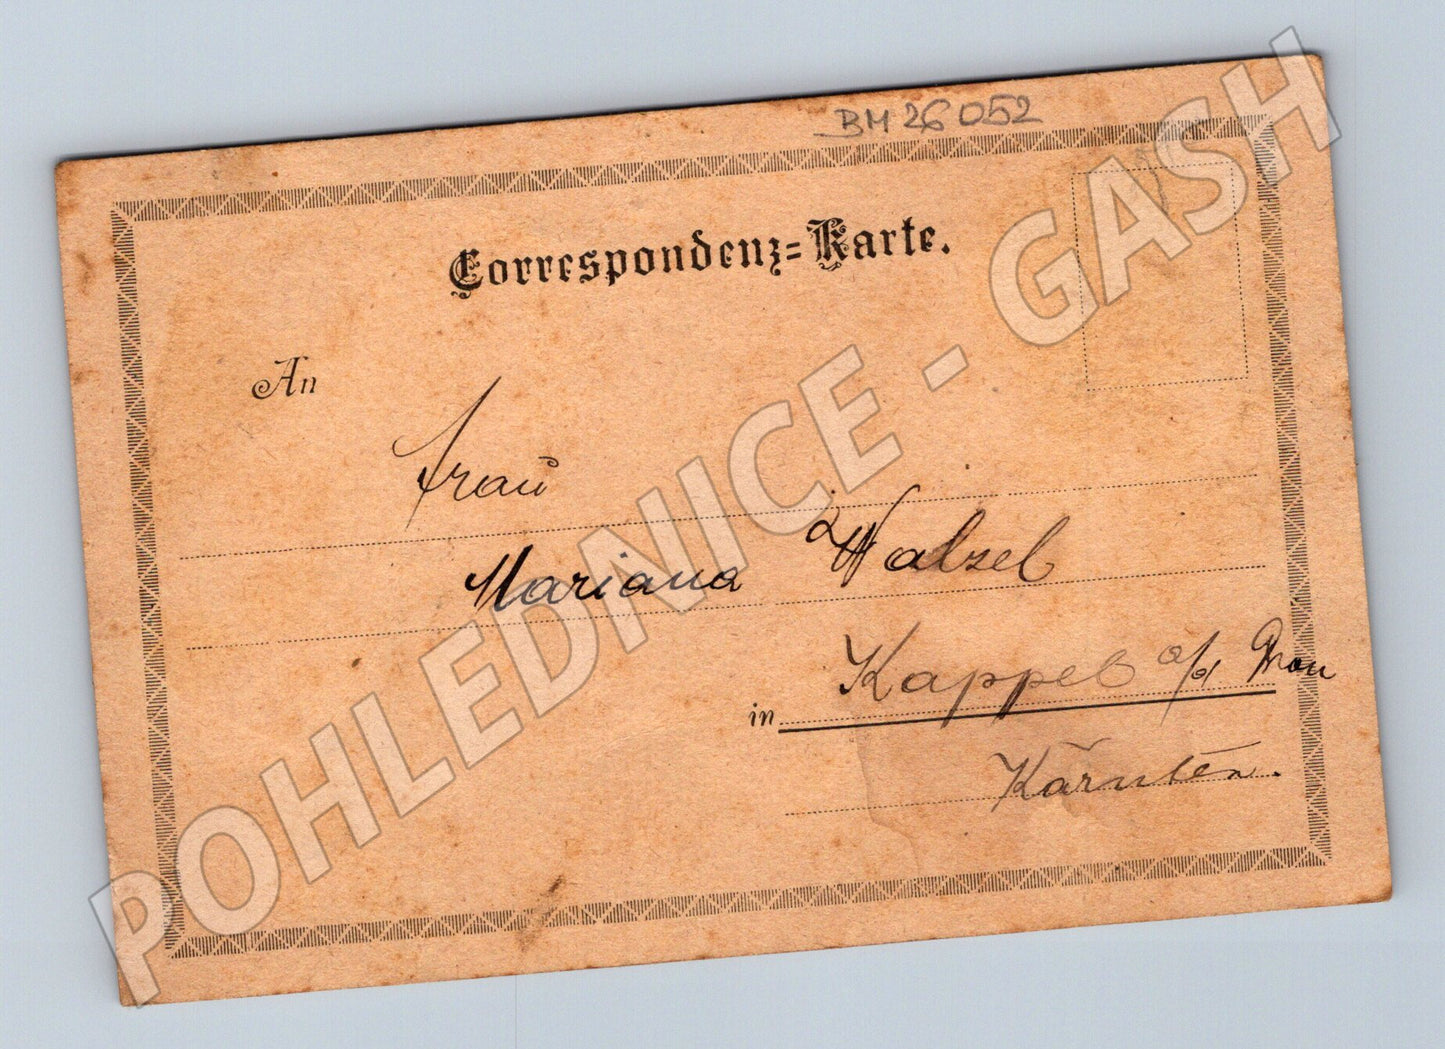 BM 26 052
Correspondenz=Karte.
An
Frau
Mariana Walzel
in Kappel a/d Drau
Kärnten.
POHLEDNICE - GASH